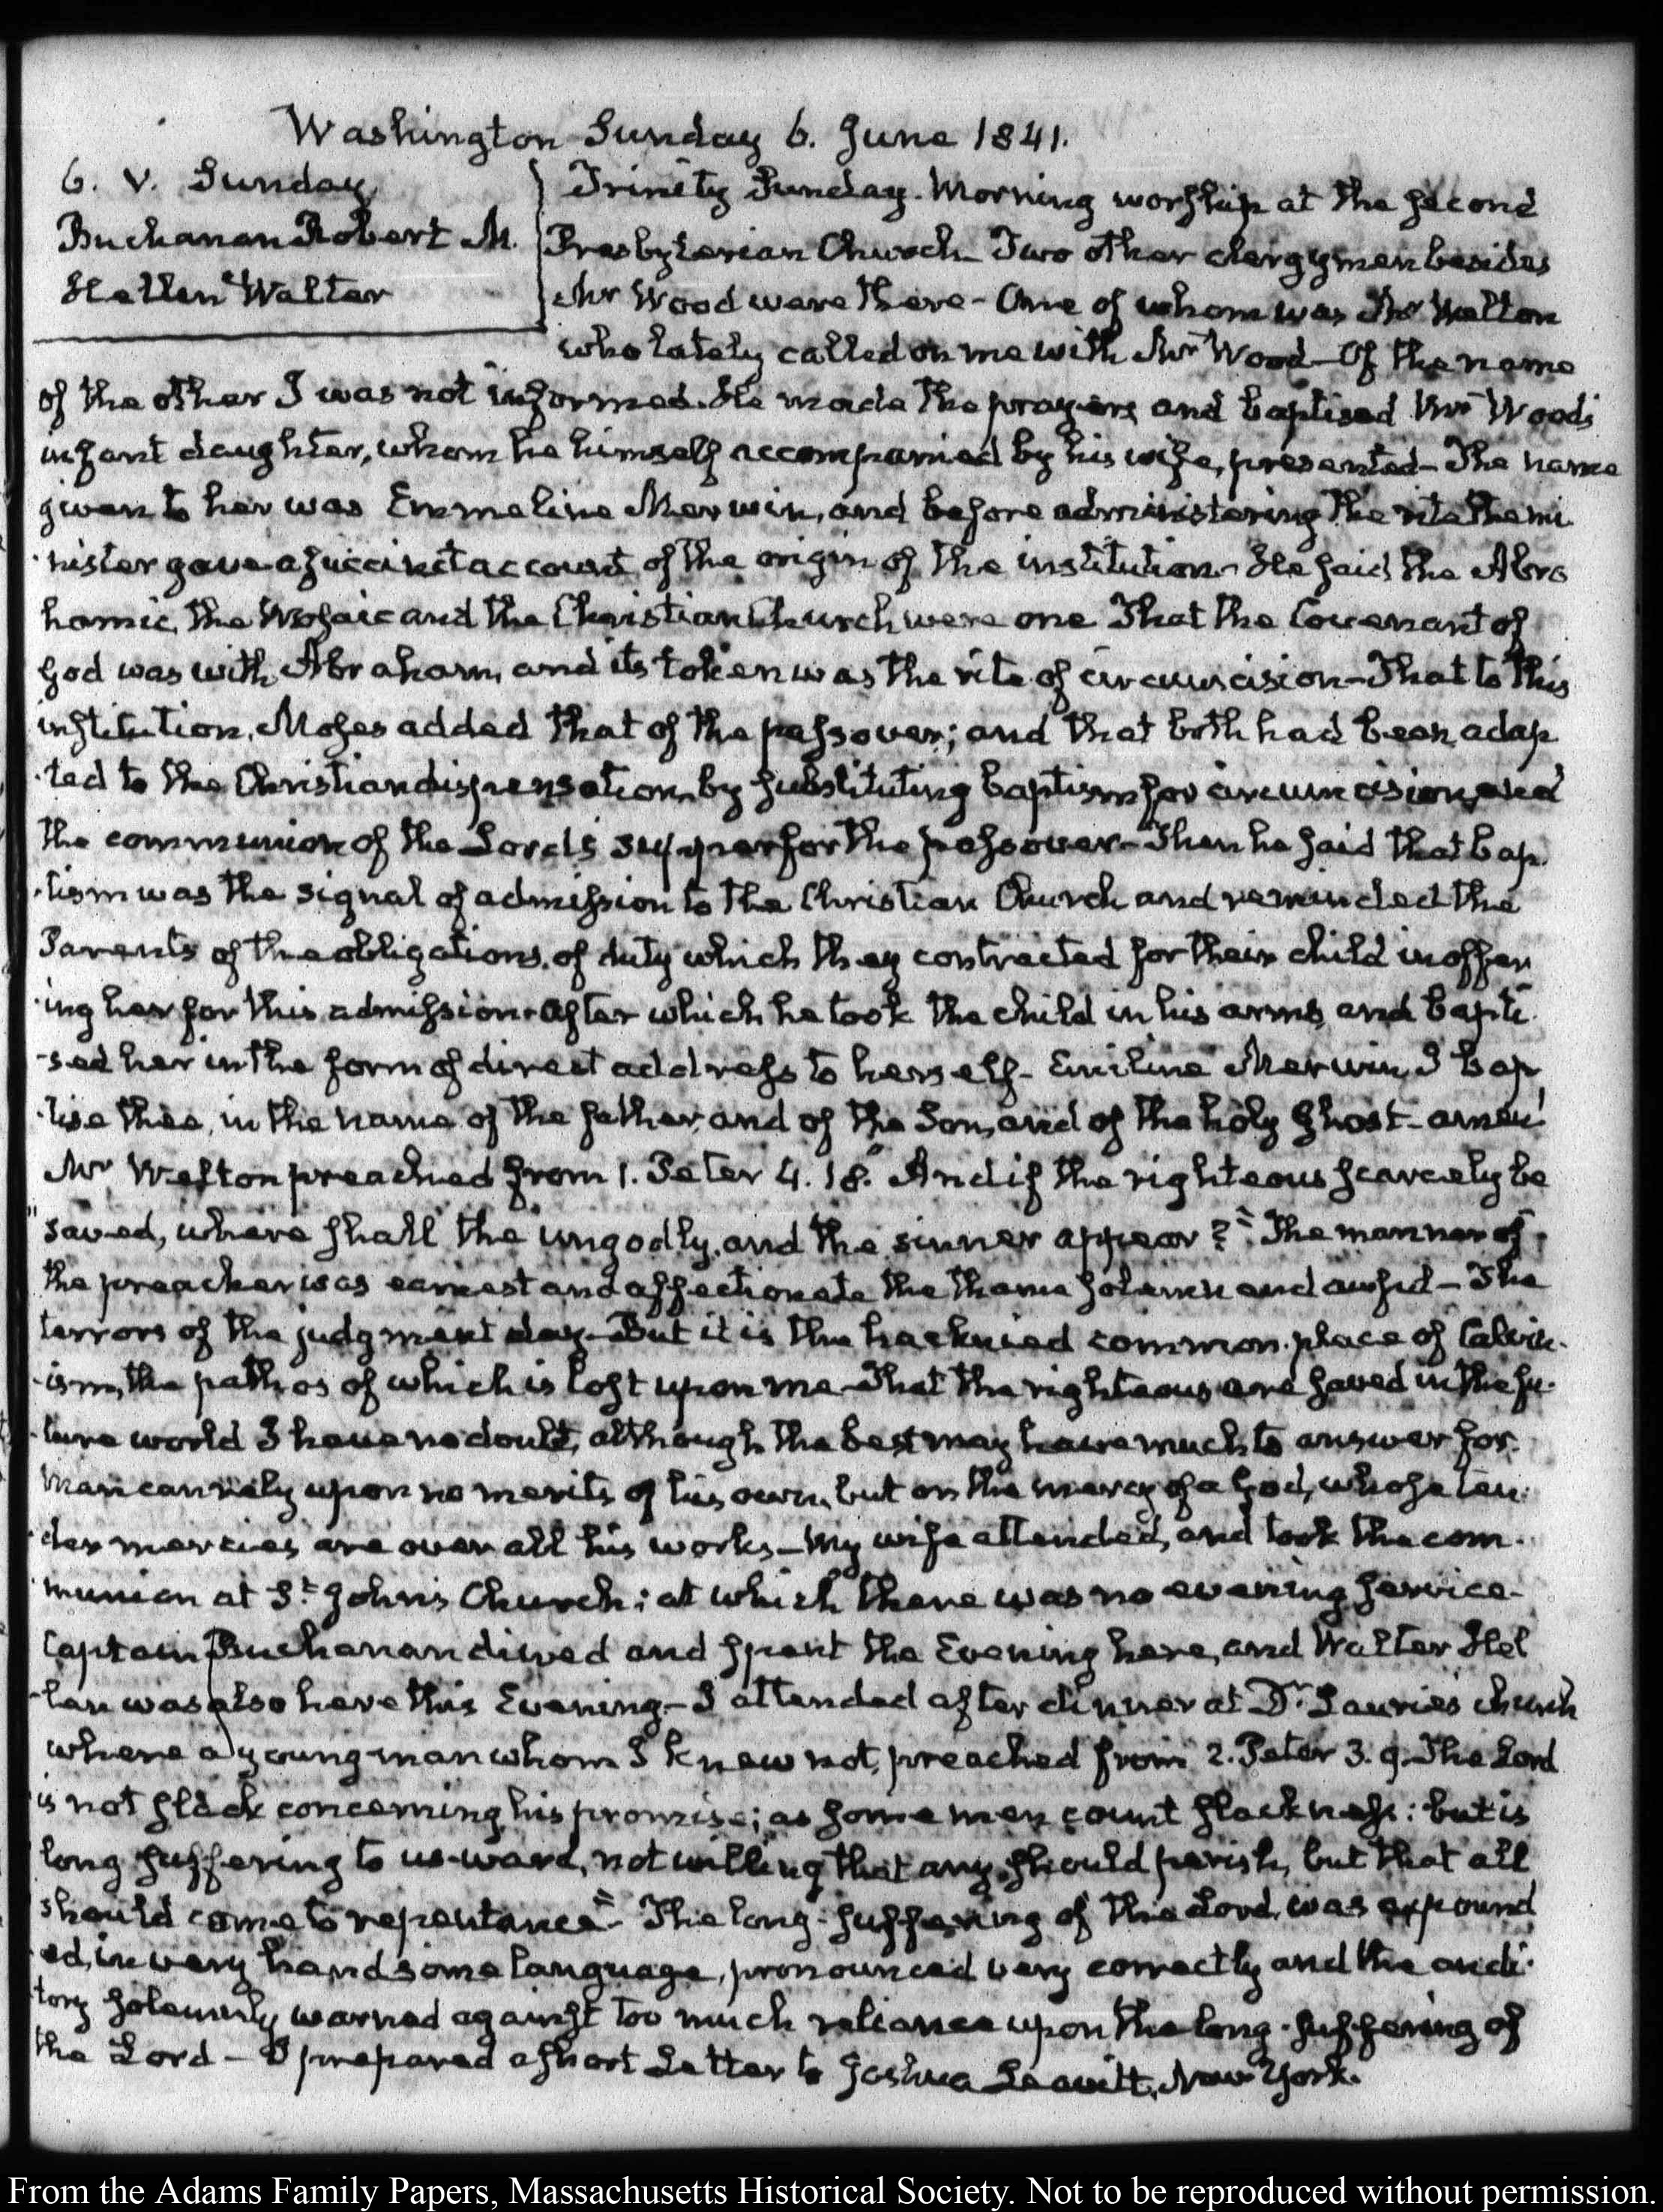 Washington Sunday 6. June 1841.
6. V. Sunday
Buchanan Robert M.
Hellen Walter
Trinity Sunday. Morning worship at the second
Presbyterian Church Two other clergymen besides
Mr Wood were there - One of whom was Mr Welton
who lately called on me with Mr Wood - Of the name
of the other I was not informed. He made the prayers and baptised Mr Woods
infant daughter, whom he himself accompanied by his wife, presented - The name
given to her was Emmeline Merwin, and before administering the rite the mi
nister gave a succinct account of the origin of the institution - He said the Abra
hamic, the Mosaic and the Christian Church were one That the Covenant of
God was with Abraham, and its token was the rite of circumcision - That to this
institution, Moses added that of the passover; and that both had been adap
ted to the Christian dispensation, by substituting baptism for circumcision, and
the communion of the Lord's supper for the passover - Then he said that bap
tism was the signal of admission to the Christian Church and reminded the
Parents of the obligations of duty which they contracted for their child in offer
ing her for this admission - After which he took the child in his arms, and bapti
sed her in the form of direct address to herself - Emiline Merwin, I bap
tise thee, in the name of the father, and of the Son, and of the holy Ghost - amen
Mr Welton preached from 1. Peter 4. 18. And if the righteous scarcely be
"saved, where shall the ungodly, and the sinner appear?" The manner of
the preacher was earnest and affectionate the theme solemn and awful - The
terrors of the judgment day - But it is the hacknied common-place of Calvin-
ism, the pathos of which is lost upon me - That the righteous are saved in the fu-
ture world I have no doubt, although the best may have much to answer for.
Man can rely upon no merits of his own, but on the mercy of a God, whose ten
der mercies are over all his works - My wife attended, and took the com-
munion at St. John's Church; at which there was no evening service -
Captain Buchanan dined and spent the Evening here, and Walter Hel
len was also here this Evening - I attended after dinner at Dr Lauries church
where a young man whom I knew not, preached from 2. Peter 3. 9. The Lord
is not slack concerning his promise; as some men count slackness: but is
long suffering to us-ward, not willing that any should perish, but that all
should come to repentance" - The long-suffering of the Lord, was expound
ed, in very handsome language, pronounced very correctly and the audi-
tory solemnly warned against too much reliance upon the long-suffering of
the Lord - I prepared a short Letter to Joshua Leavitt, New York.
From the Adams Family Papers, Massachusetts Historical Society. Not to be reproduced without permission.